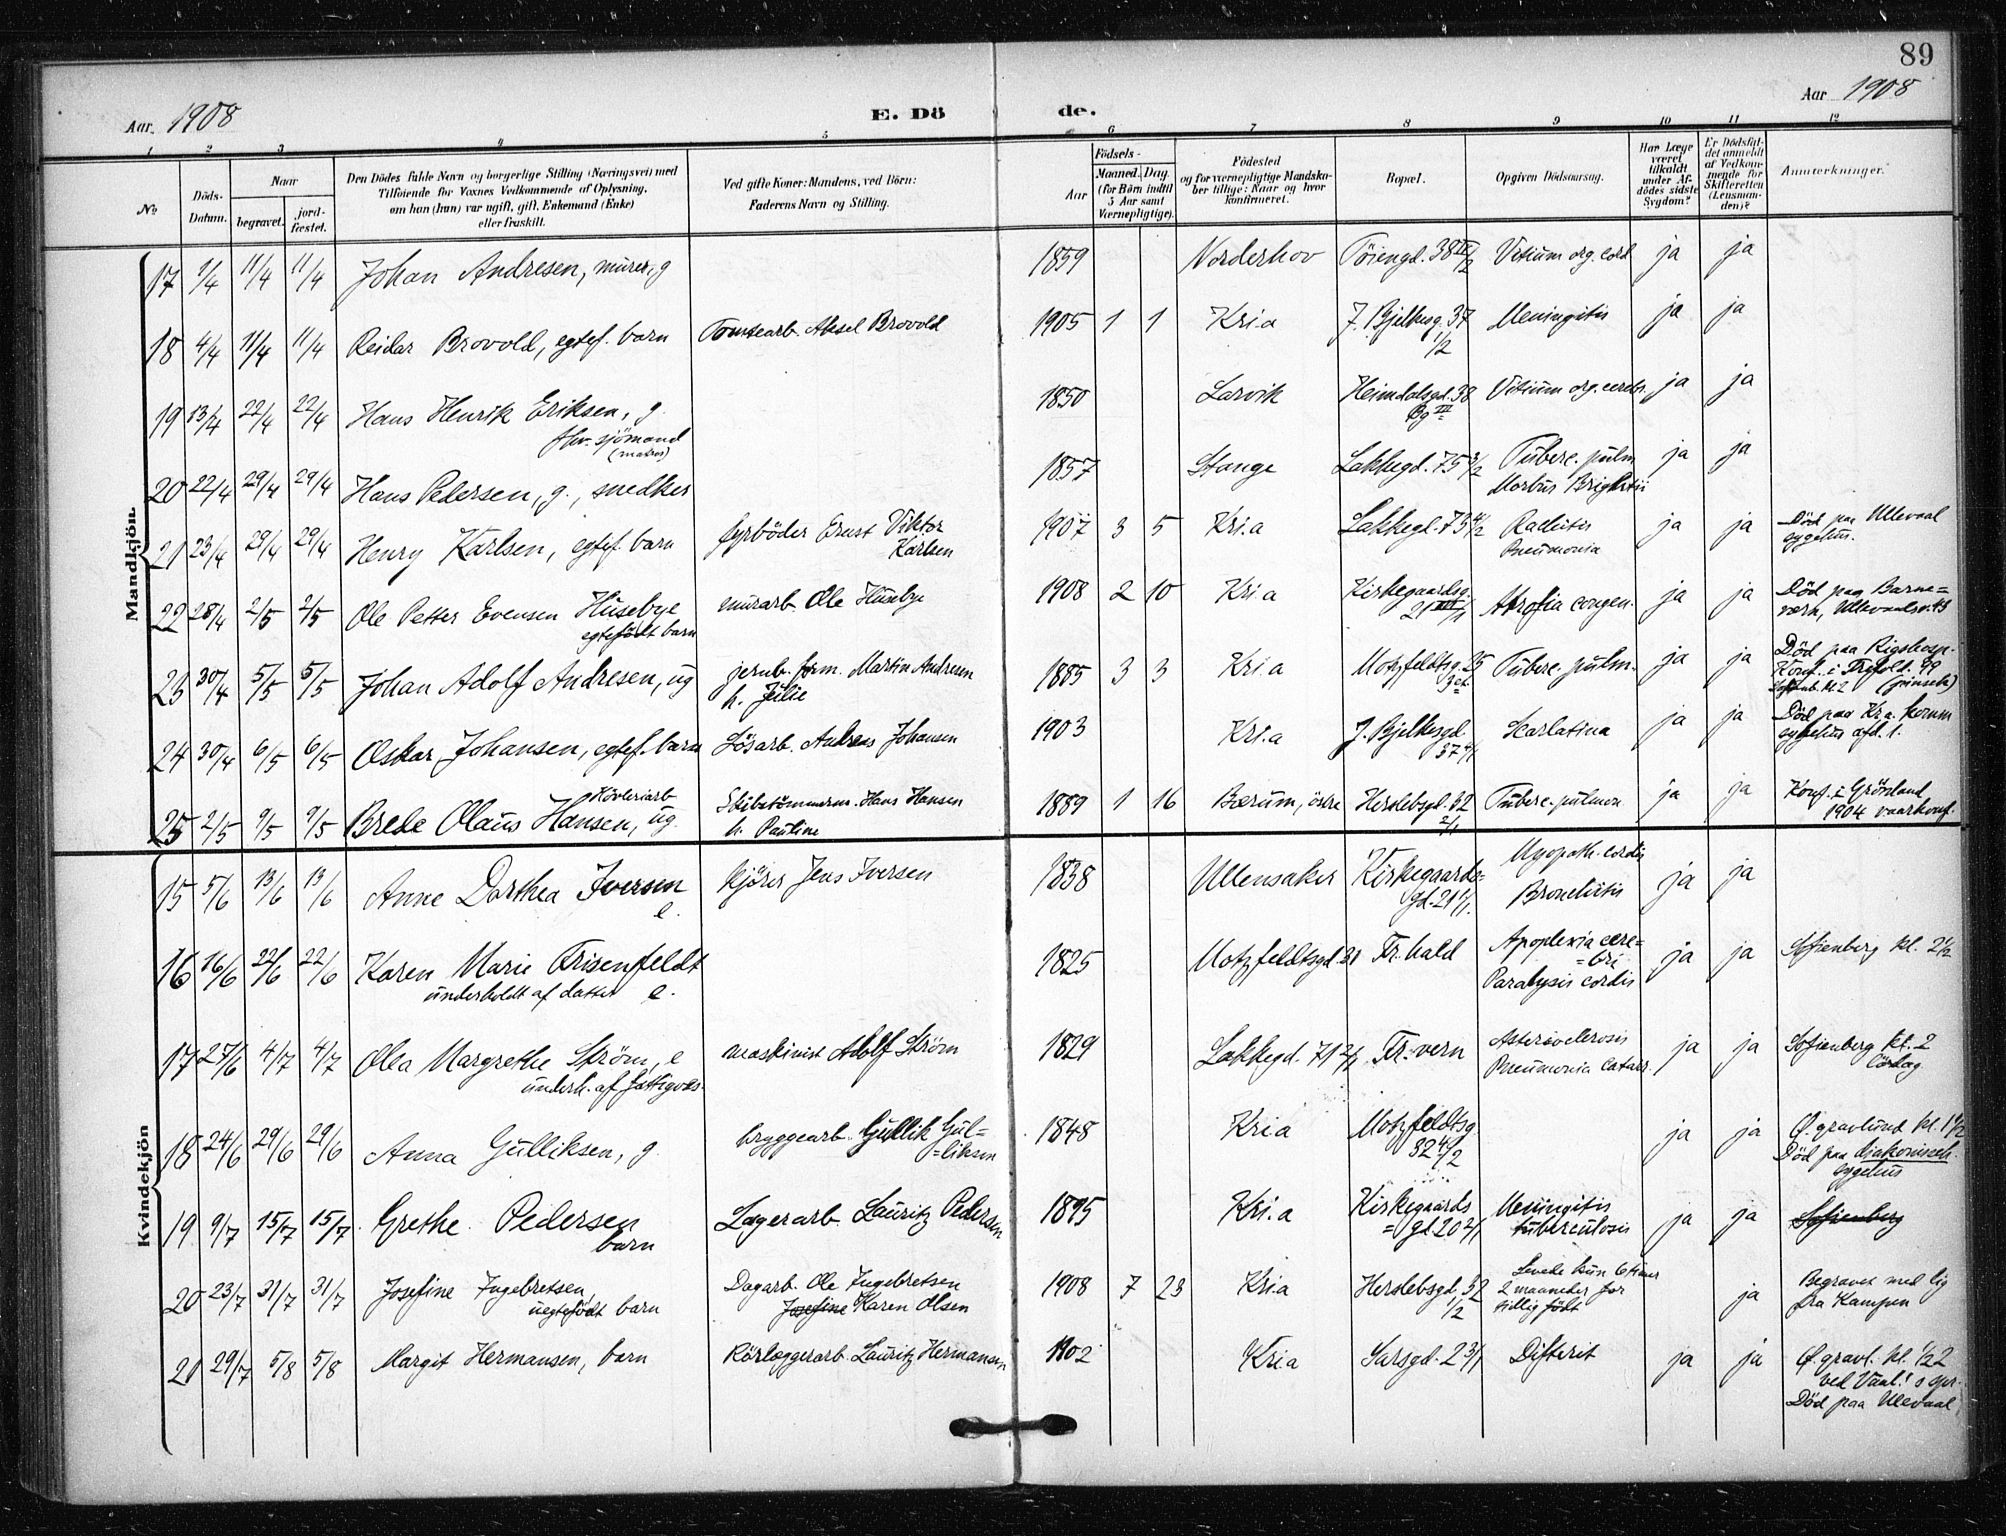 89
Aar 1908
E. Dö
de.
Aar 1908
1 2 3 4 5 6 7 8 9 10 11 12
No
Döds-Datum.
Naar
begravet.
jord-fæstet.
Den Dödes fulde Navn og borgerlige Stilling (Næringsvei) med
Tilföiende for Voxnes Vedkommende af Oplysning,
om han (hun) var ugift, gift, Enkemand (Enke)
eller fraskilt.
Ved gifte Koner: Mandens, ved Börn:
Faderens Navn og Stilling.
Födsels-
Aar
Maaned.
Dag.
(for Börn indtil
5 Aar samt
Værnepligtige).
Födested
og for værnepligtige Mandska-
ber tillige: Naar og hvor
konfirmeret.
Bopæl.
Opgiven Dödsaarsag.
Har Læge
været
tilkaldt
under Af-
dödes sidste
Sygdom?
Er Dödsfal-
det anmeldt
af Vedkom-
mende for
Skifteretten
(Lensman-
den)?
Anmærkninger.
Mandkjön.
17 1/4 11/4 11/4 Johan Andresen, murer, g 1859 Norderhov Töiengd. 38 III/2 Vitium org. cord ja ja
18 4/4 11/4 11/4 Reidar Brovold, egtef. barn Tomtearb. Aksel Brovold 1905 1 1 Kri.a J. Bjelkesg. 37 Meningitis ja ja
1/2
19 13/4 22/4 22/4 Hans Henrik Eriksen, g. 1850 Larvik Heimdalsgd. 38 Vitium org. cerebr. ja ja
fhv. sjömand Bg III
(matros)
20 22/4 29/4 29/4 Hans Pedersen, g., snedker 1857 Stange Lakkegd. 75 3/2 Tuberc. pulm ja ja
Morbus Brightii
21 23/4 29/4 29/4 Henry Karlsen, egtef. barn fyrböder Ernst Viktor 1907 3 5 Kri.a Lakkegd. 73 4/2 Rachitis ja ja Död paa Ullevaal
Karlsen Pneumonia sygehus.
22 28/4 2/5 2/5 Ole Petter Evensen Husebye murarb. Ole Husebye 1908 2 10 Kri a Kirkegaardsg. Atrofia congen. ja ja Död paa Barne=
egtefödt barn 21 III/1 værn, Ullevaalsv. 43
23 30/4 5/5 5/5 Johan Adolf Andresen, ug jernb. form. Martin Andresen 1885 3 3 Kri.a Motzfeldtsg. 25 Tuberc. pulm. ja ja Död paa Rigshosp.
h. Julie 3 et. Konf. i Trefold. 99
24 30/4 6/5 6/5 Oskar Johansen, egtef. barn Lösarb. Andreas Johansen 1903 Kri.a J. Bjelkesgd. Scarlatina ja ja Död paa Kr.a komm
37 4/1 sygehus afd. 1.
25 2/5 9/5 9/5 Brede Olaus Hansen, ug. Hövleriarb Skibstömmerm. Hans Hansen 1889 1 16 Bærum, östre Herslebsgd. 32 Tuberc. pulmon ja ja Konf. i Grönland
h. Pauline 2/1 1904 vaarkonf.
Kvindekjön
15 5/6 13/6 13/6 Anne Dorthea Iversen kjörer Jens Iversen 1838 Ullensaker Kirkegaards= Myopath. cordis ja ja
e. gd. 21 1/1. Bronchitis
16 16/6 22/6 22/6 Karen Marie Frisenfeldt 1825 Motzfeldtsgd. 31 Fr. hald Apoplexia cere= ja ja Sofienberg kl. 2 1/2
underholdt af datter e. =bri
Paralysis cordis
17 27/6 4/7 4/7 Olea Margrethe Ström, e maskinist Adolf Ström 1829 Lakkegd. 71 2/1 Fr. vern Pneumonia catarr. ja ja Sofienberg kl. 2
underh. af fattigvæs. Lördag
18 24/6 29/6 29/6 Anna Gulliksen, g. bryggearb. Gullik Gul= 1848 Kri a Motzfeldtsg. ja ja Ø. gravlund kl. 1 1/2
=liksen 32 4/2 Död paa diakonisseh.
sygehus
19 9/7 15/7 15/7 Grethe Pedersen Lagerarb. Lauritz Pedersen 1895 Kri.a Kirkegaards Meningitis ja ja Sofienberg
barn =gd 20 2/1 tuberculosis
20 23/7 31/7 31/7 Josefine Ingebretsen Dagarb. Ole Ingebretsen 1908 7 23 Kri.a Herslebsgd. 32 Levede kun 6 timer ja Begravet med lig
uegtefödt barn Josefine Karen Olsen 1/2 2 maaneder for fra Kampen
tidlig födt
21 29/7 5/8 5/8 Margit Hermansen, barn Rörlæggerarb. Lauritz Hermansen 1902 Kri a Sarsgd. 2 3/1 Difterit ja ja Ø. gravl. kl. 1/2 2
Död paa Ullevaal